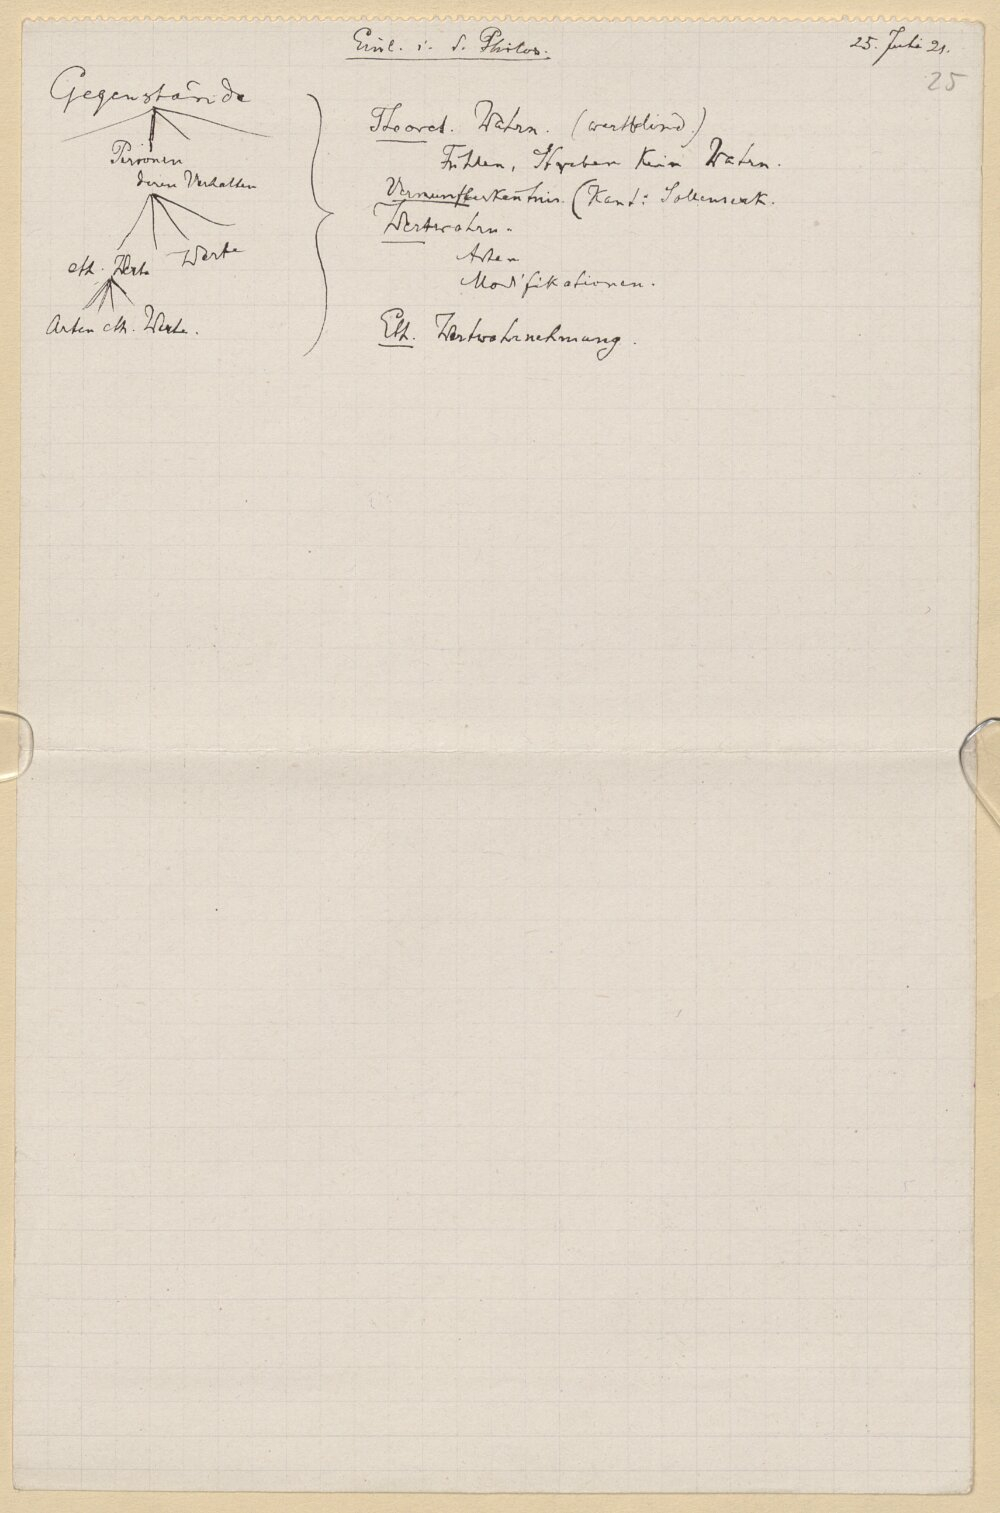 Einl. i. d. Philos.
25. Juli 21.
25
Gegenstände
Personen
deren Verhalten
eth. Werte Werte
Arten eth. Werte.
Theoret. Wahrn. (wertblind.)
Fühlen, Streben kein Wahrn.
Vernunfterkentnis. (Kant:
Wertwahrn.
Arten
Modifikationen.
Eth. Wertwahrnehmung.